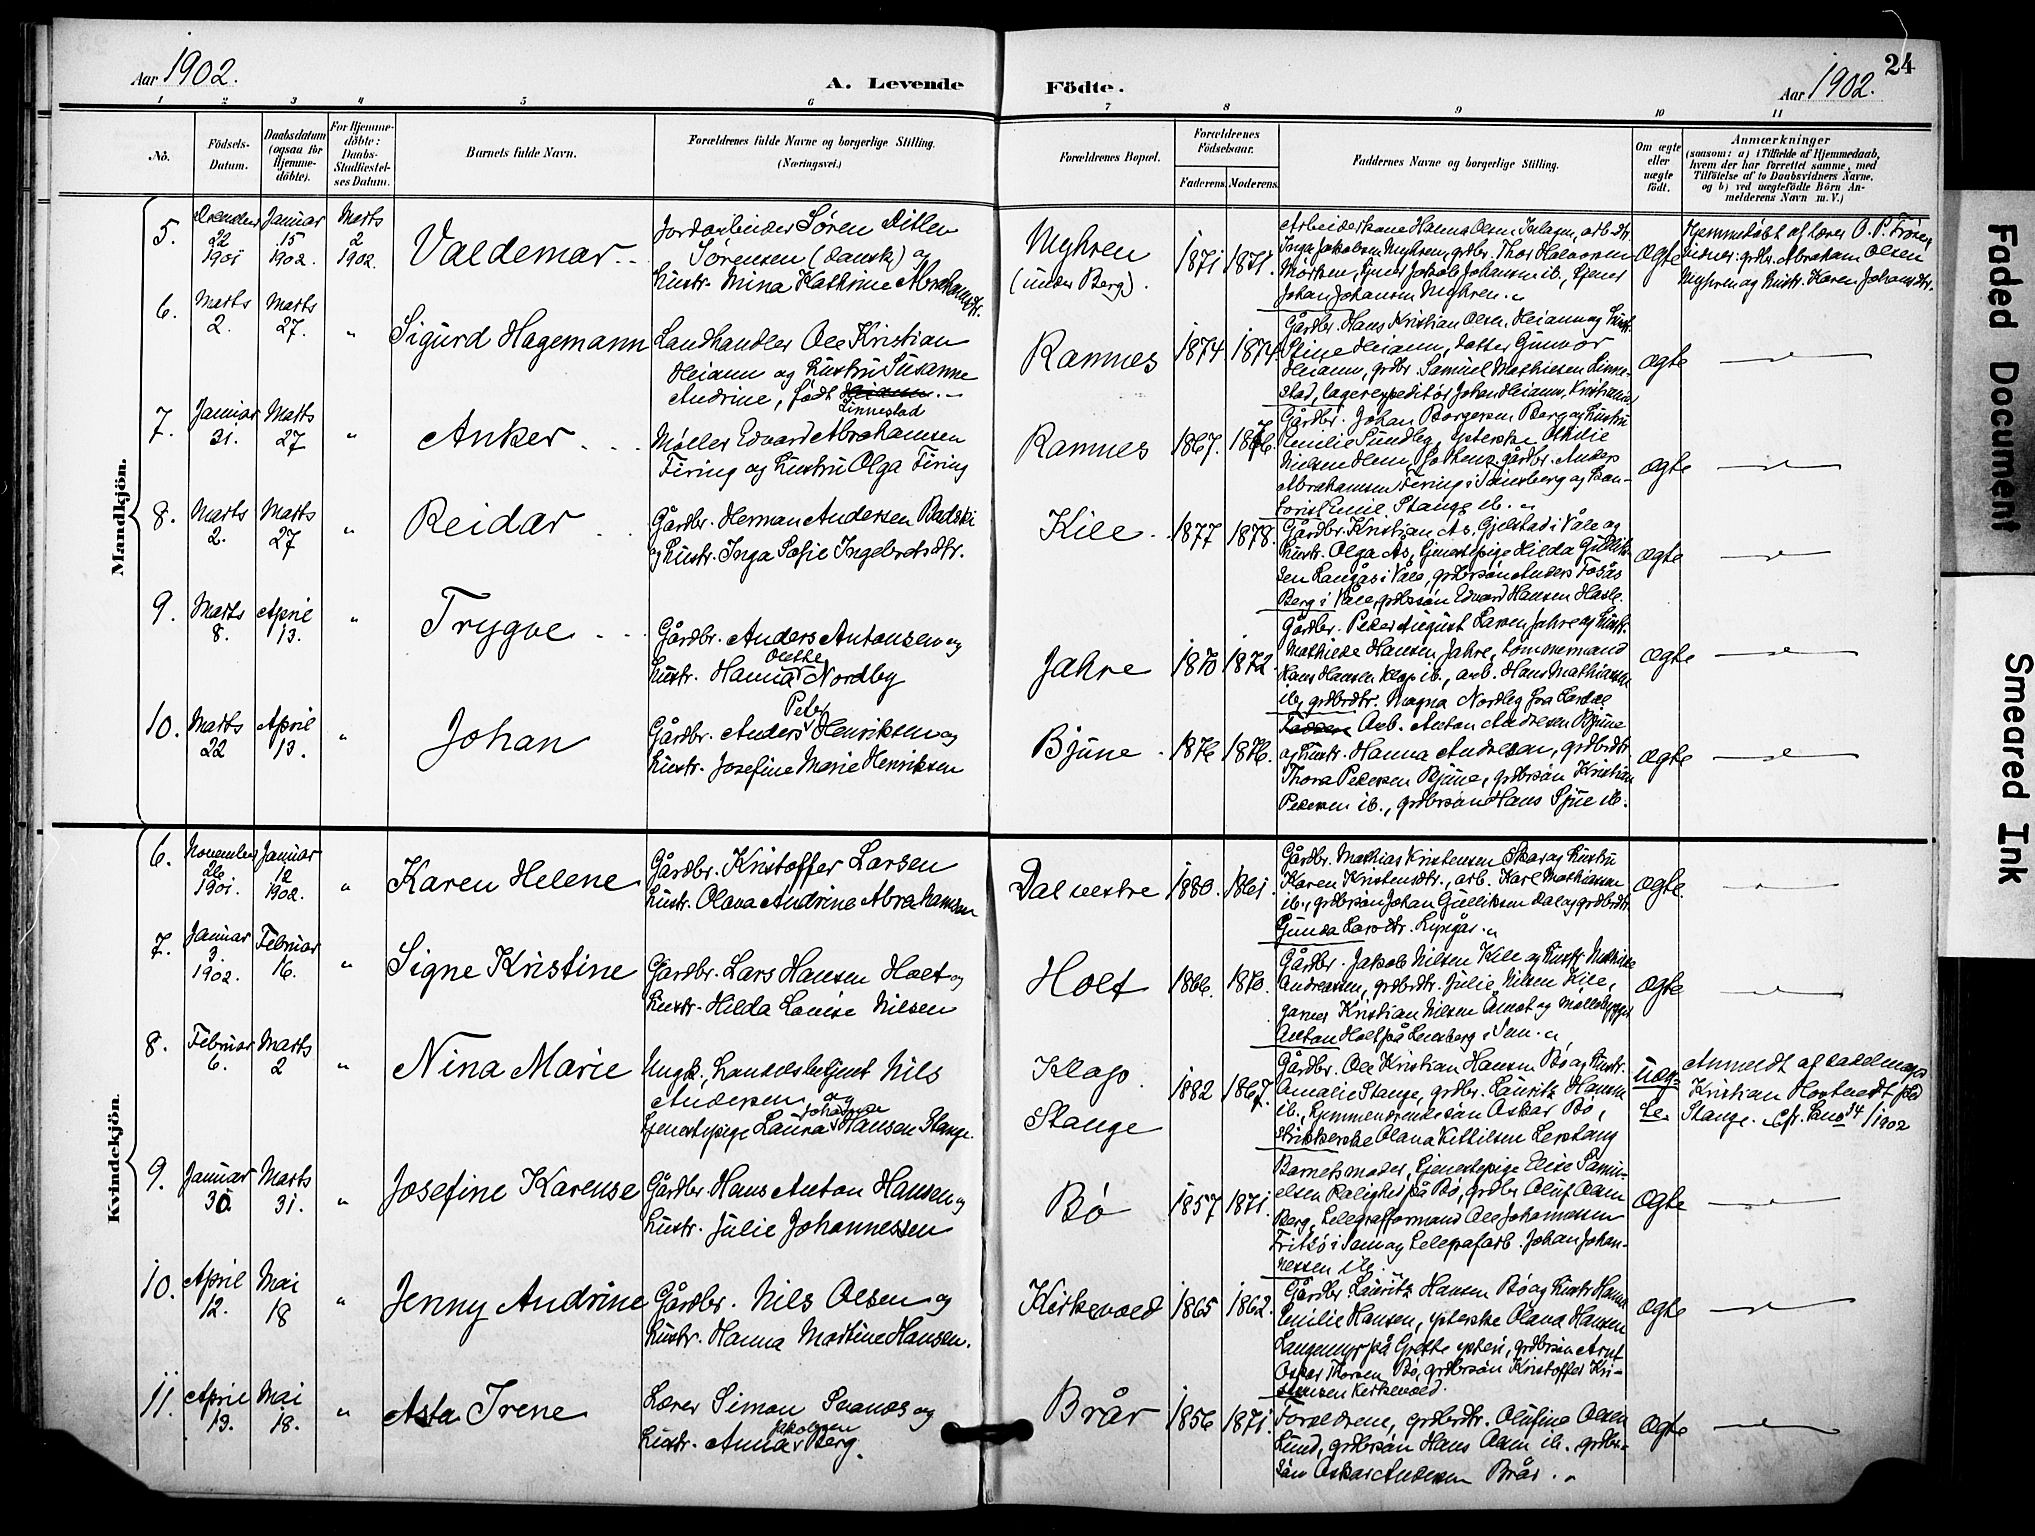 Aar 1902.
A. Levende
Födte.
Aar 1902.
24
1 2 3 4 5 6 7 8 9 10 11
No.
Födsels-
Datum.
Daabsdatum
(ogsaa for
Hjemme-
döbte).
For Hjemme-
döbte:
Daabs-
Stadfæstel-
ses Datum.
Barnets fulde Navn.
Forældrenes fulde Navne og borgerlige Stilling.
(Næringsvei.)
Forældrenes Bopæl.
Forældrenes
Födselsaar.
Faderens. Moderens.
Faddernes Navne og borgerlige Stilling.
Om ægte
eller
uægte
födt.
Anmærkninger
(saasom: a) i Tilfælde af Hjemmedaab,
hvem der har forrettet samme, med
Tilföielse af to Daabsvidners Navne,
og b) ved uægtefödte Börn An-
melderens Navn m. V.)
Mandkjön.
5.
22
1901
Januar
15
1902.
Marts
2
1902.
Valdemar
Jordarbeider Søren Ditlev
Sørensen (dansk) og
hustr. Mina Kathrine Abrahamsdtr.
Myhren
(under Berg).
1871 1871.
Johan Johansen Myhren.
ægte
Hjemmedøbt af lærer O. P.
Abraham Olsen
Myhren og hustr. Karen Johansdtr.
6.
Marts
2.
Marts
27.
"
Sigurd Hagemann
Landhandler Ole Kristian
Heiann og hustru Susanne
Andrine, født Heiann
Linnestad
Ramnes
1874 1874
Gårdbr. Hans Kristian Olsen Heiann og hustr.
Stine Heiann, datter Gunvor
Heiann, grdbr. Samuel Mathisen Linne-
stad, lagerexpeditør Johan Heiann, Kristiania
ægte
7.
Januar
31.
Marts
27
"
Anker
Møller Edvard Abrahamsen
Firing og hustru Olga Firing
Ramnes
1867. 1876.
Gårdbr. Johan Borgersen Berg og hustru
Emilie Sundby,
Abrahamsen Firing i Tønsberg
Emil Stange ib.
ægte
8.
Marts
2.
Marts
27
"
Reidar
Gårdbr. Herman Andersen Badski
og hustr. Inga Sofie Ingebretsdtr.
Kile
1877 1878.
Gårdbr. Kristian As. Gjelstad i Våle og
hustr. Olga As, tjenestepige Hilda Gullik-
sen Langås i Våle, grdbrsøn Anders
Berg i Våle, grdbrsøn Edvard Hansen Hasle.
ægte
9.
Marts
8.
April
13.
"
Trygve
Gårdbr. Anders Antonsen og
Olette
hustr. Hanna Nordby
Jahre
1870 1872
Gårdbr. Peder August Larsen Jahre og hustr.
Mathilde Hansen Jahre, tømmermand
Hans Hansen Klop ib., arb. Hans Mathiassen
ib., grdbrdtr. Magna Nordby fra Lardal
ægte
10.
Marts
22
April
13.
"
Johan
Peter
Gårdbr. Anders Henriksen og
hustr. Josefine Marie Henriksen
Bjune
1876 1876.
Arb. Anton Andresen Bjune
og hustr. Hanna Andresen, grdbrdtr.
Thora Pedersen Bjune, grdbrsøn Kristian
Pedersen ib., grdbrsøn Hans Sjue ib.
ægte
Kvindekjön.
6.
November
26
1901.
Januar
12
1902.
"
Karen Helene
Gårdbr. Kristoffer Larsen
hustr. Olava Andrine Abrahamsen
Dal vestre
1880. 1861.
Gårdbr. Mathias Kristensen og hustru
Karen Kristensdtr., arb. Karl Mathiassen
ib., grdbrsøn Johan Gulliksen Dal og grdbrdtr.
Gunda Larsdtr.
ægte.
7.
Januar
3.
1902.
Februar
16.
"
Signe Kristine
Gårdbr. Lars Hansen Holt og
hustr. Hilda Louise Nilsen
Holt
1866. 1870.
Gårdbr. Jakob Nilsen Kile og hustr. Mathilde
Andreassen, grdbrdtr. Julie Nilsen Kile,
garver Kristian Nilsen Åmot og møllebygger
Anton Holt på i Sem.
ægte
8.
Februar
6.
Marts
2
"
Nina Marie
Ungk., handelsbetjent Nils
Andersen og
Johanne
tjenestepige Laura Hansen Stange.
Klop.
Stange
1882 1867.
Gårdbr. Ole Kristian Hansen Bø og hustr.
Amalie Stange, grdbr. Lauritz Hansen
ib., hjemmeværende søn Oskar Bø,
Olava Kittilsen
uæg-
te.
Anmeldt af
Kristian
Stange. 14/1902
9.
Januar
30.
Marts
31.
"
Josefine Karense
Gårdbr. Hans Anton Hansen og
hustr. Julie Johannessen
Bø
1857 1871.
Barnets moder, tjenestepige Elise Samu-
elsen på Bø, grdbr. Oluf
Berg, telegrafformand Ole Johannessen
i Sem og telegrafarb. Johan Johan-
nessen ib.
ægte
10.
April
12.
Mai
18
"
Jenny Andrine
Gårdbr. Nils Olsen og
hustr. Hanna Martine Hansen.
Kirkevold
1865 1862.
Gårdbr. Lauritz Hansen Bø og hustr. Hanna
Emilie Hansen, Olava Hansen
Langemyr på Grette ysteri, grdbrsøn Arnt
Oskar Thorsen Bø, grdbrsøn Kristoffer Kri-
stensen Kirkevold.
ægte
11.
April
13.
Mai
18.
"
Asta Irene
Lærer Simon Svanes og
Jakobsen
hustr. Anna Berg.
Brår
1856 1871.
Forældrene, grdbrdtr. Olufine Olsen
Lund, grdbrsøn Hans ib. grdbr-
søn Oskar Andersen Brår.
ægte
Faded Document
Smeared Ink